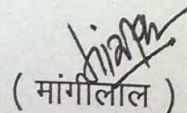 ( मांगीलाल )